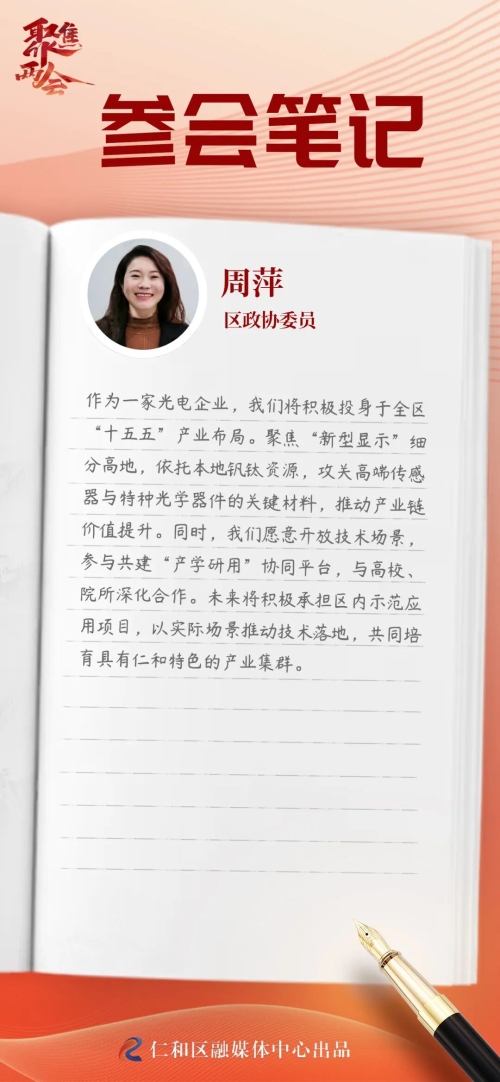 聚焦
两会
参会笔记
周萍
区政协委员
作为一家光电企业，我们将积极投身于全区
“十五五”产业布局。聚焦“新型显示”细
分高地，依托本地钒钛资源，攻关高端传感
器与特种光学器件的关键材料，推动产业链
价值提升。同时，我们愿意开放技术场景，
参与共建“产学研用”协同平台，与高校、
院所深化合作。未来将积极承担区内示范应
用项目，以实际场景推动技术落地，共同培
育具有仁和特色的产业集群。
仁和区融媒体中心出品